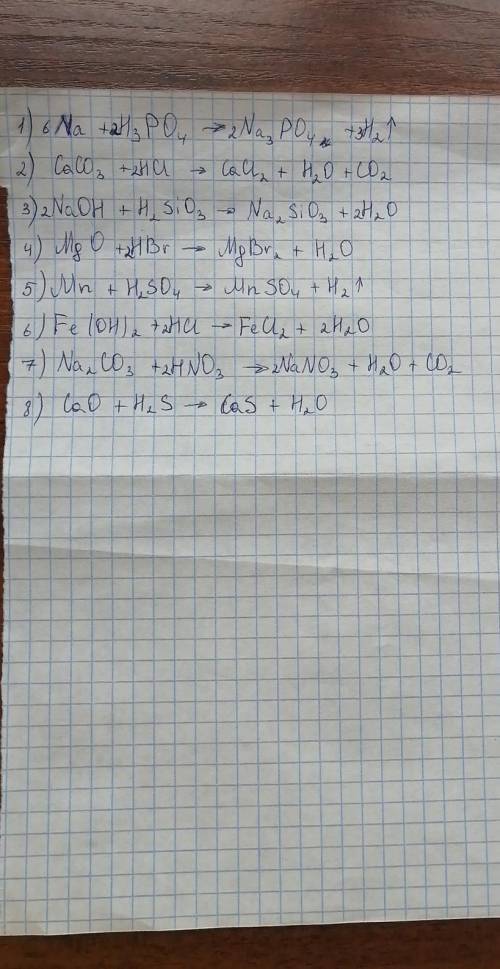 1) 6Na + 2H₃PO₄ → 2Na₃PO₄ + 3H₂↑
2) CaCO₃ + 2HCl → CaCl₂ + H₂O + CO₂
3) 2NaOH + H₂SiO₃ → Na₂SiO₃ + 2H₂O
4) MgO + 2HBr → MgBr₂ + H₂O
5) Mn + H₂SO₄ → MnSO₄ + H₂↑
6) Fe(OH)₂ + 2HCl → FeCl₂ + 2H₂O
7) Na₂CO₃ + 2HNO₃ → 2NaNO₃ + H₂O + CO₂
8) CaO + H₂S → CaS + H₂O